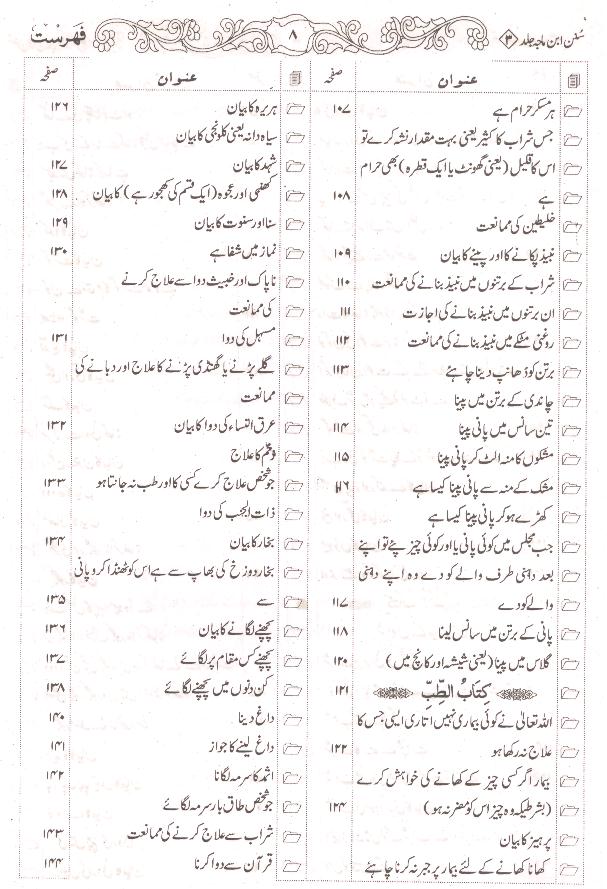 سُنن ابن ماجہ جلد ۳
۸
فہرست
عنوان
صفحہ
ہر مسکر حرام ہے ۱۰۷
جس شراب کا کثیر یعنی بہت مقدار نشہ کرے تو
اس کا قلیل (یعنی گھونٹ یا ایک قطرہ) بھی حرام
ہے ۱۰۸
خلیطین کی ممانعت
نبیذ پکانے کا اور پینے کا بیان ۱۰۹
شراب کے برتنوں میں نبیذ بنانے کی ممانعت ۱۱۰
ان برتنوں میں نبیذ بنانے کی اجازت ۱۱۱
روغنی مٹکے میں نبیذ بنانے کی ممانعت ۱۱۲
برتن کو ڈھانپ دینا چاہئے ۱۱۳
چاندی کے برتن میں پینا
تین سانس میں پانی پینا ۱۱۴
مشکوں کا منہ الٹ کر پانی پینا ۱۱۵
مشک کے منہ سے پانی پینا کیسا ہے ۱۱۶
کھڑے ہو کر پانی پینا کیسا ہے
جب مجلس میں کوئی پانی یا اور کوئی چیز پئے تو اپنے
بعد داہنی طرف والے کو دے وہ اپنے داہنی
والے کو دے ۱۱۷
پانی کے برتن میں سانس لینا ۱۱۸
گلاس میں پینا (یعنی شیشہ اور کانچ میں) ۱۲۰
کِتَابُ الطِّبِّ ۱۲۱
اللہ تعالیٰ نے کوئی بیماری نہیں اتاری ایسی جس کا
علاج نہ رکھا ہو ۱۲۲
بیمار اگر کسی چیز کے کھانے کی خواہش کرے
(بشرطیکہ وہ چیز اس کو مضر نہ ہو) ۱۲۴
پرہیز کا بیان
کھانا کھانے کے لئے بیمار پر جبر نہ کرنا چاہئے
عنوان
صفحہ
ہریرہ کا بیان ۱۲۶
سیاہ دانہ یعنی کلونجی کا بیان
شہد کا بیان ۱۲۷
کھنبی اور عجوہ (ایک قسم کی کھجور ہے) کا بیان ۱۲۸
سنا اور سنوت کا بیان ۱۲۹
نماز میں شفا ہے ۱۳۰
ناپاک اور خبیث دوا سے علاج کرنے
کی ممانعت
مسہل کی دوا ۱۳۱
گلے پڑنے یا گھنڈی پڑنے کا علاج اور دبانے کی
ممانعت
عرق النساء کی دوا کا بیان ۱۳۲
زخم کا علاج
جو شخص علاج کرے کسی کا اور طب نہ جانتا ہو ۱۳۳
ذات الجنب کی دوا
بخار کا بیان ۱۳۴
بخار دوزخ کی بھاپ سے ہے اس کو ٹھنڈا کرو پانی
سے ۱۳۵
پچھنے لگانے کا بیان ۱۳۶
پچھنے کس مقام پر لگائے ۱۳۷
کن دنوں میں پچھنے لگائے ۱۳۸
داغ دینا ۱۴۰
داغ لینے کا جواز ۱۴۱
اثمد کا سرمہ لگانا ۱۴۲
جو شخص طاق بار سرمہ لگائے
شراب سے علاج کرنے کی ممانعت ۱۴۳
قرآن سے دوا کرنا ۱۴۴